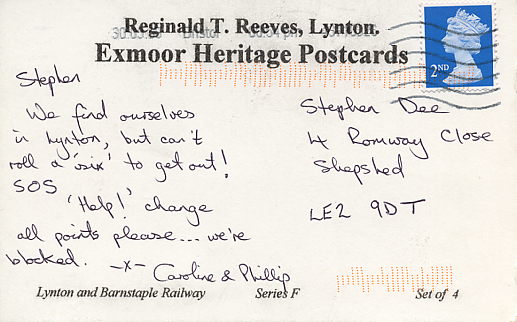 Reginald T. Reeves, Lynton.
Exmoor Heritage Postcards
2ND
Stephen
We find ourselves
in Lynton, but can't
roll a 'six' to get out!
SOS
'Help!' change
all points please... we're
blocked. -x-
Caroline & Phillip
Stephen Dee
4 Romway Close
Shepshed
LE2 9DT
Lynton and Barnstaple Railway Series F Set of 4